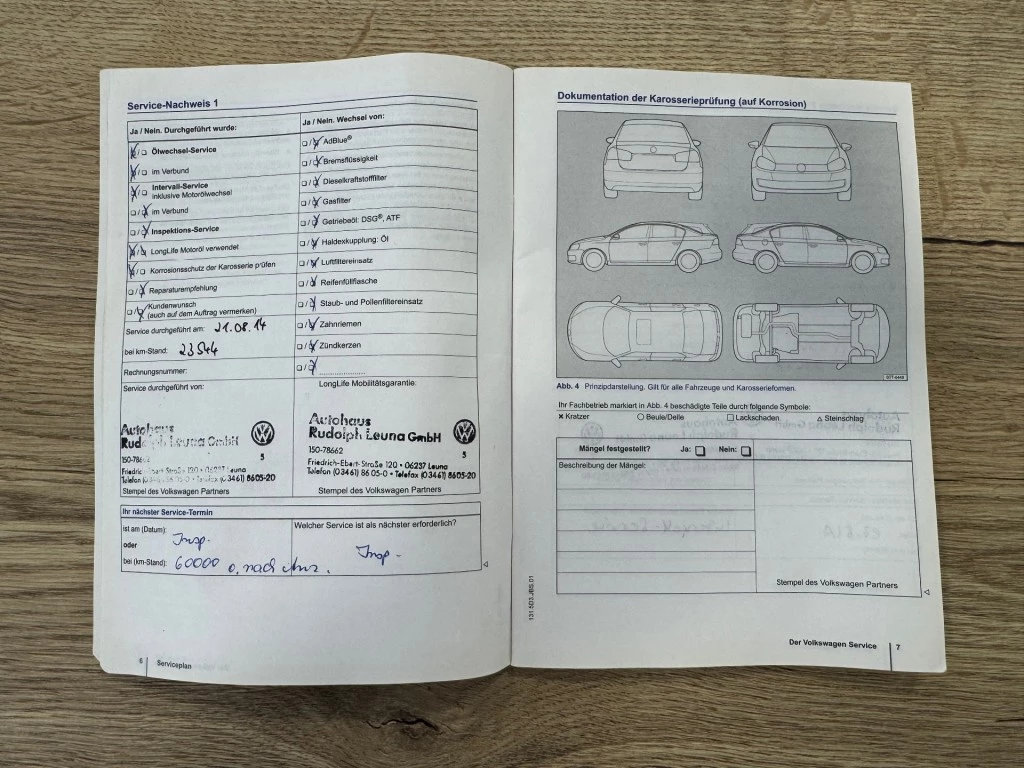 Service-Nachweis 1
Ja / Nein. Durchgeführt wurde:
Ölwechsel-Service
im Verbund
Intervall-Service
inklusive Motorölwechsel
im Verbund
Inspektions-Service
LongLife Motoröl verwendet
Korrosionsschutz der Karosserie prüfen
Reparaturempfehlung
Kundenwunsch
(auch auf dem Auftrag vermerken)
Service durchgeführt am: 21.08.14
bei km-Stand: 23544
Rechnungsnummer:
Service durchgeführt von:
Autohaus
Rudolph Leuna GmbH
5
Stempel des Volkswagen Partners
Ja / Nein. Wechsel von:
AdBlue®
Bremsflüssigkeit
Dieselkraftstofffilter
Gasfilter
Getriebeöl: DSG®, ATF
Haldexkupplung: Öl
Luftfiltereinsatz
Reifenfüllflasche
Staub- und Pollenfiltereinsatz
Zahnriemen
Zündkerzen
LongLife Mobilitätsgarantie:
Autohaus
Rudolph Leuna GmbH
150-78662
5
Friedrich-Ebert-Straße 120 • 06237 Leuna
Telefon (03461) 8605-0 • Telefax (03461) 8605-20
Stempel des Volkswagen Partners
Ihr nächster Service-Termin
ist am (Datum): Insp.
oder
bei (km-Stand): 60000 o. nach Anz.
Welcher Service ist als nächster erforderlich?
Insp.
6 Serviceplan
Dokumentation der Karosserieprüfung (auf Korrosion)
Abb. 4 Prinzipdarstellung. Gilt für alle Fahrzeuge und Karosserieformen.
Ihr Fachbetrieb markiert in Abb. 4 beschädigte Teile durch folgende Symbole:
× Kratzer ○ Beule/Delle □ Lackschaden △ Steinschlag
Mängel festgestellt? Ja: Nein:
Beschreibung der Mängel:
Stempel des Volkswagen Partners
131.5D3.JBS.01
Der Volkswagen Service 7